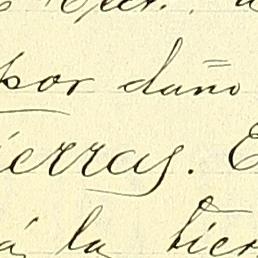 por daño
ierras.
á la tier